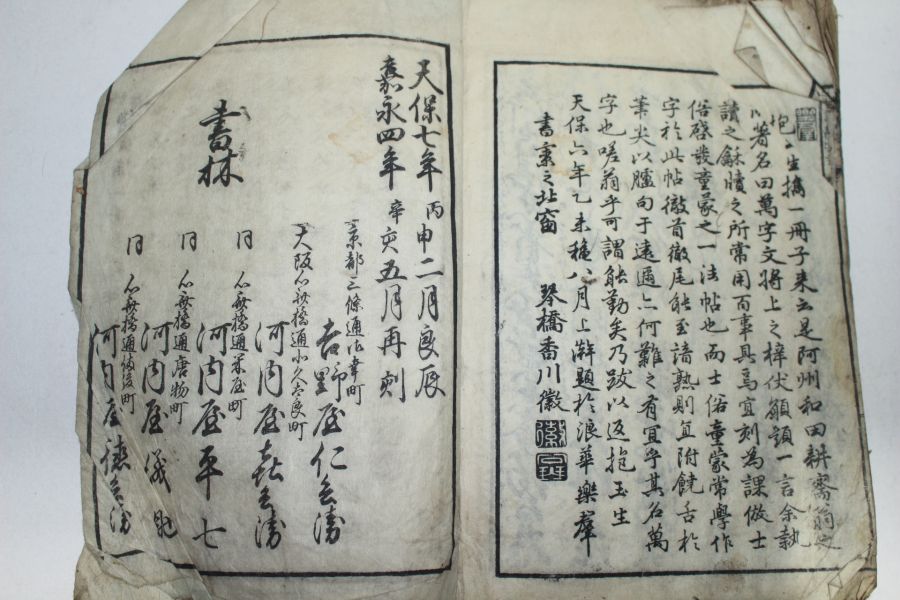 抱玉生携一冊子来云是阿州和田耕斎翁
以著名曰萬字文将上之梓伏願題一言余執
讀之蘇牘之所常用百事具焉宜刻為課倣士
俗啓發童蒙之一法帖也而士俗童蒙常學作
字於此帖徹首徹尾能至諳熟則宜附饒舌於
筆尖以臚句于遠邇亦何難之有宜乎其名萬
字也嗟翁乎可謂能勤矣乃跋以返抱玉生
天保六年乙未穐八月上澣題於浪華樂群
書案之北窗 琴橋香川徽
天保七年丙申二月良辰
嘉永四年辛亥五月再刻
書林
京都三條通御幸町
吉野屋仁兵衛
大阪心斎橋通北久太良町
河内屋喜兵衛
同 心斎橋通
河内屋平七
同 心斎橋通唐物町
河内屋儀助
同 心斎橋通備後町
河内屋徳兵衛